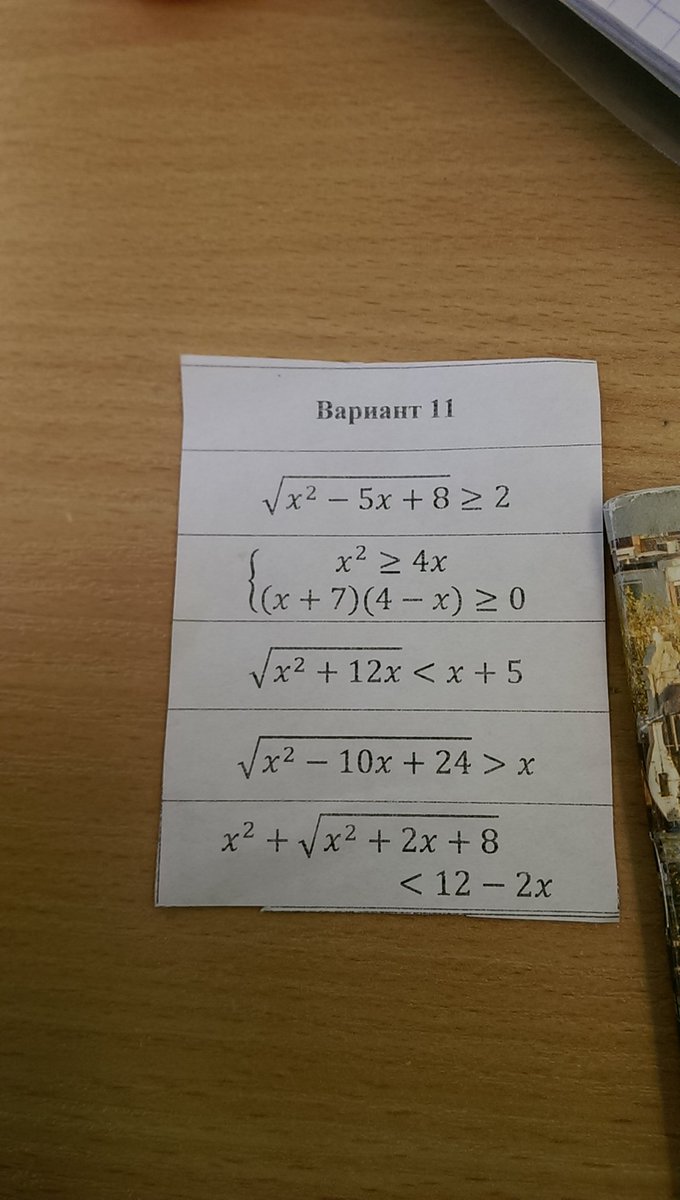 Вариант 11
√(x² − 5x + 8) ≥ 2
{ x² ≥ 4x
(x + 7)(4 − x) ≥ 0
√(x² + 12x) < x + 5
√(x² − 10x + 24) > x
x² + √(x² + 2x + 8)
< 12 − 2x